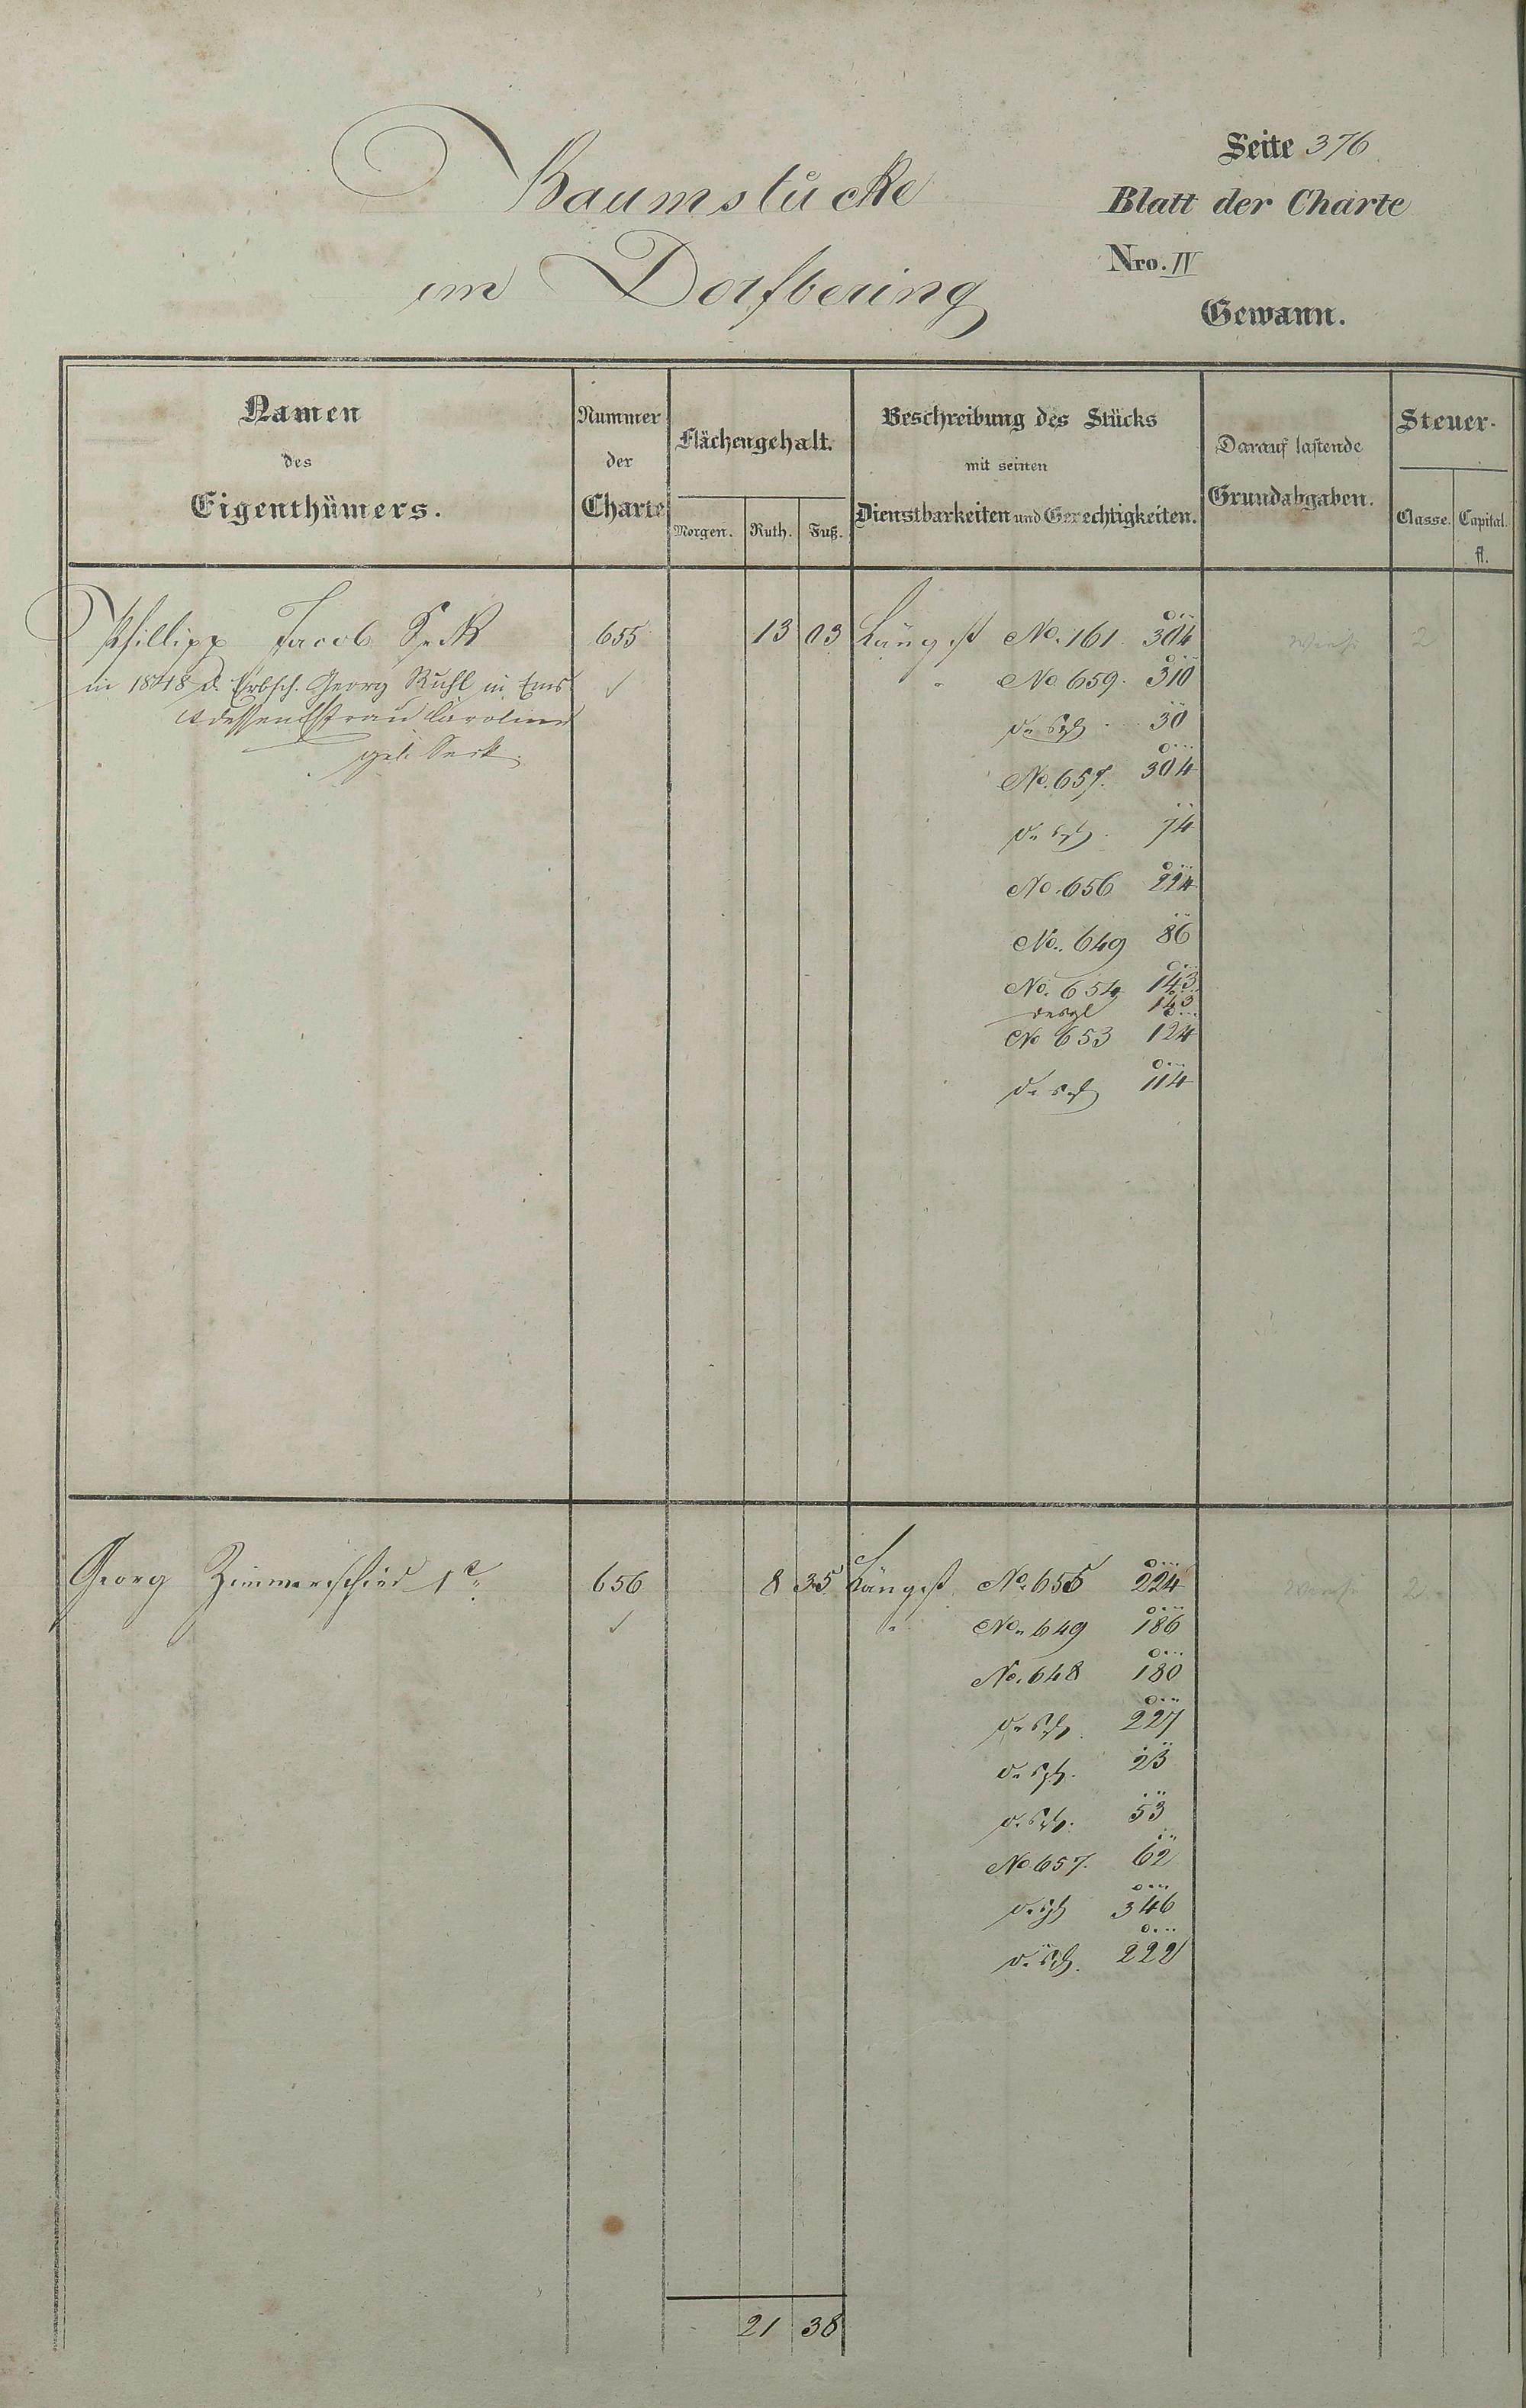 Seite 376
Baumstücke
Blatt der Charte
im Dorfbering
Nro. IV
Gewann.
Namen des Eigenthümers.
Nummer der Charte
Flächengehalt.
Morgen. Ruth. Fuß.
Beschreibung des Stücks mit seinen Dienstbarkeiten und Gerechtigkeiten.
Darauf lastende Grundabgaben.
Steuer-
Classe. Capital. fl.
Phillipp Jacob Seck 655 13 03 Längst No. 161. 304 Wiese 2
in 1848 d. Erbsch. Georg Ruhl in Ems ✓ " No. 659. 310
& dessen Ehfrau Caroline desgl. 30
geb. Seck
No. 657. 304
desgl. 74
No. 656 224
No. 649 86
No. 654 143
desgl 143
No 653 124
desgl 114
Georg Zimmerschied 1r 656 8 35 Längst No. 655 224 Wiese 2
✓ " No. 649 186
No. 648 180
desgl. 227
desgl. 23
desgl. 53
No 657. 62
desgl 346
desgl. 222
21 38